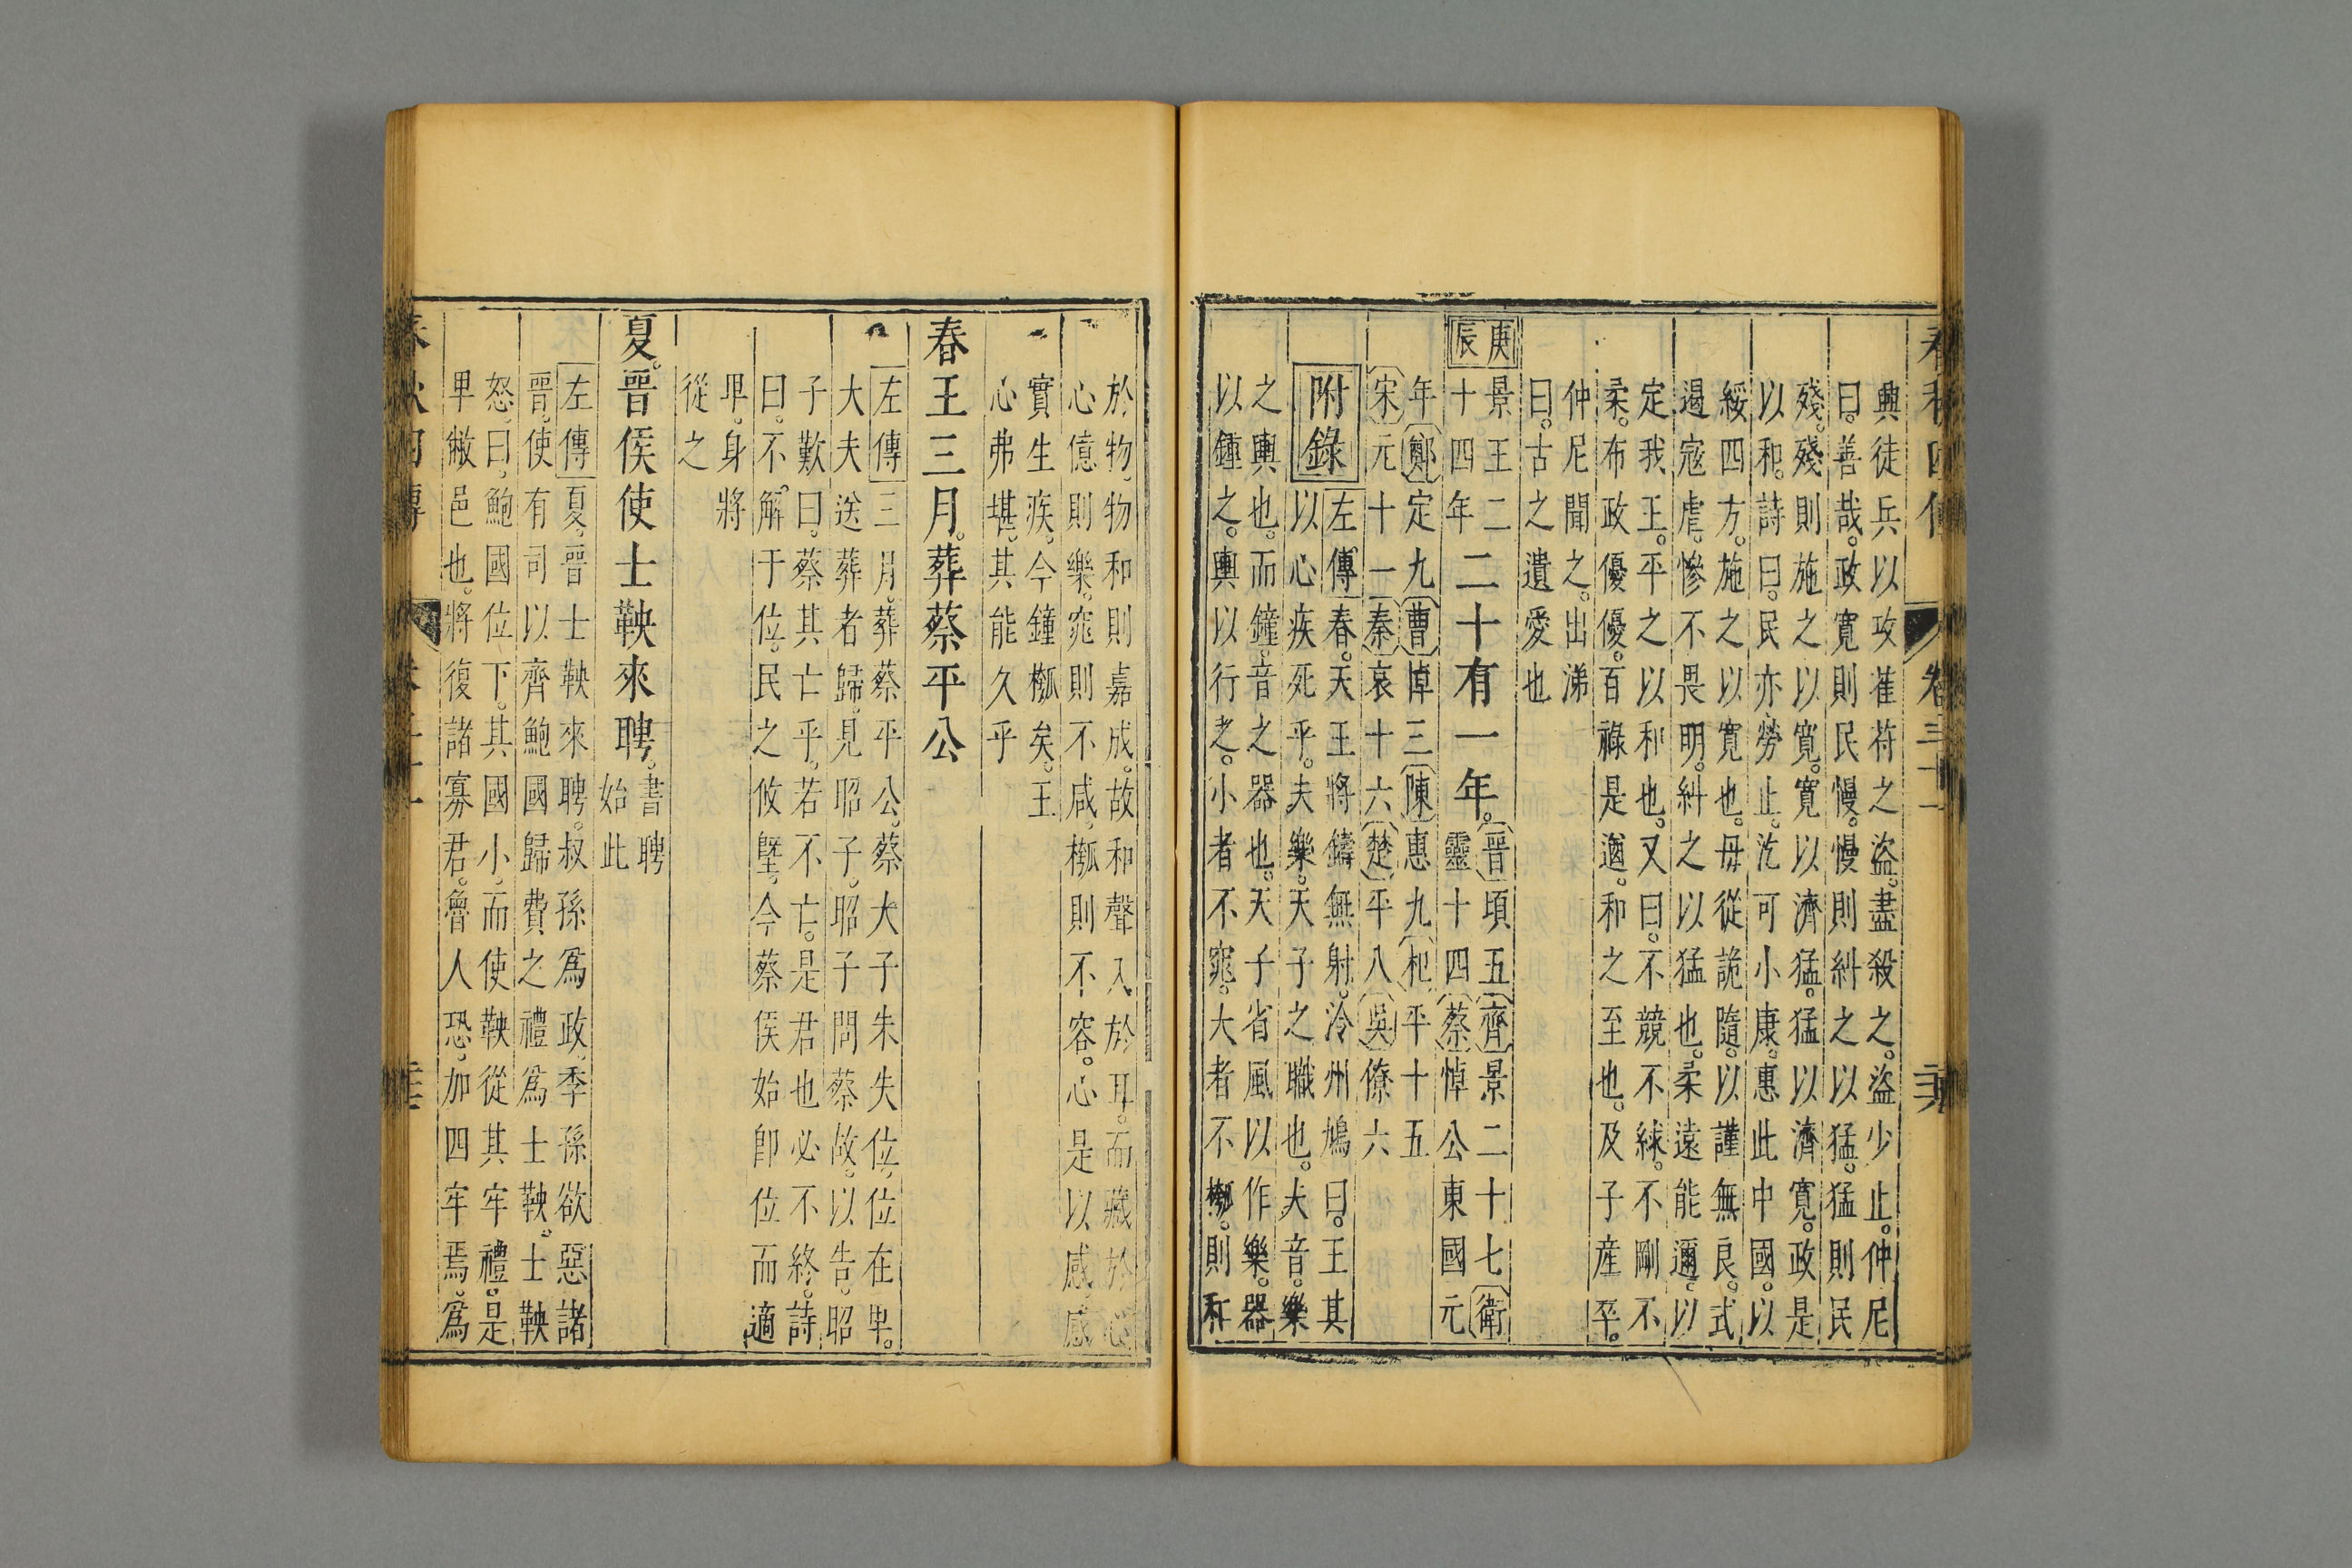 興徒兵以攻萑苻之盜。盡殺之。盜少止。仲尼
曰。善哉。政寬則民慢。慢則糾之以猛。猛則民
殘。殘則施之以寬。寬以濟猛。猛以濟寬。政是
以和。詩曰。民亦勞止。汔可小康。惠此中國。以
綏四方。施之以寬也。毋從詭隨。以謹無良。式
遏寇虐。慘不畏明。糾之以猛也。柔遠能邇。以
定我王。平之以和也。又曰。不競不絿。不剛不
柔。布政優優。百祿是遒。和之至也。及子產卒。
仲尼聞之。出涕
曰。古之遺愛也
庚辰
景王二
十四年
二十有一年。
晉頃五齊景二十七衛
靈十四蔡悼公東國元
年鄭定九曹悼三陳惠九杞平十五
宋元十一秦哀十六楚平八吳僚六
附錄
左傳春。天王將鑄無射。泠州鳩曰。王其
以心疾死乎。夫樂。天子之職也。夫音。樂
之輿也。而鐘。音之器也。天子省風以作樂。器
以鍾之。輿以行之。小者不窕。大者不槬。則和
於物。物和則嘉成。故和聲入於耳。而藏於心
心億則樂。窕則不咸。槬則不容。心是以感。感
實生疾。今鐘槬矣。王
心弗堪。其能久乎
春王三月。葬蔡平公
左傳三月。葬蔡平公。蔡大子朱失位。位在卑。
大夫送葬者歸。見昭子。昭子問蔡故。以告。昭
子歎曰。蔡其亡乎。若不亡。是君也必不終。詩
曰。不解于位。民之攸墍。今蔡侯始卽位而適
卑。身將
從之
夏。晉侯使士鞅來聘。
書聘
始此
左傳夏。晉士鞅來聘。叔孫爲政。季孫欲惡諸
晉。使有司以齊鮑國歸費之禮爲士鞅。士鞅
怒。曰。鮑國位下。其國小。而使鞅從其牢禮。是
卑敝邑也。將復諸寡君。魯人恐。加四牢焉。爲